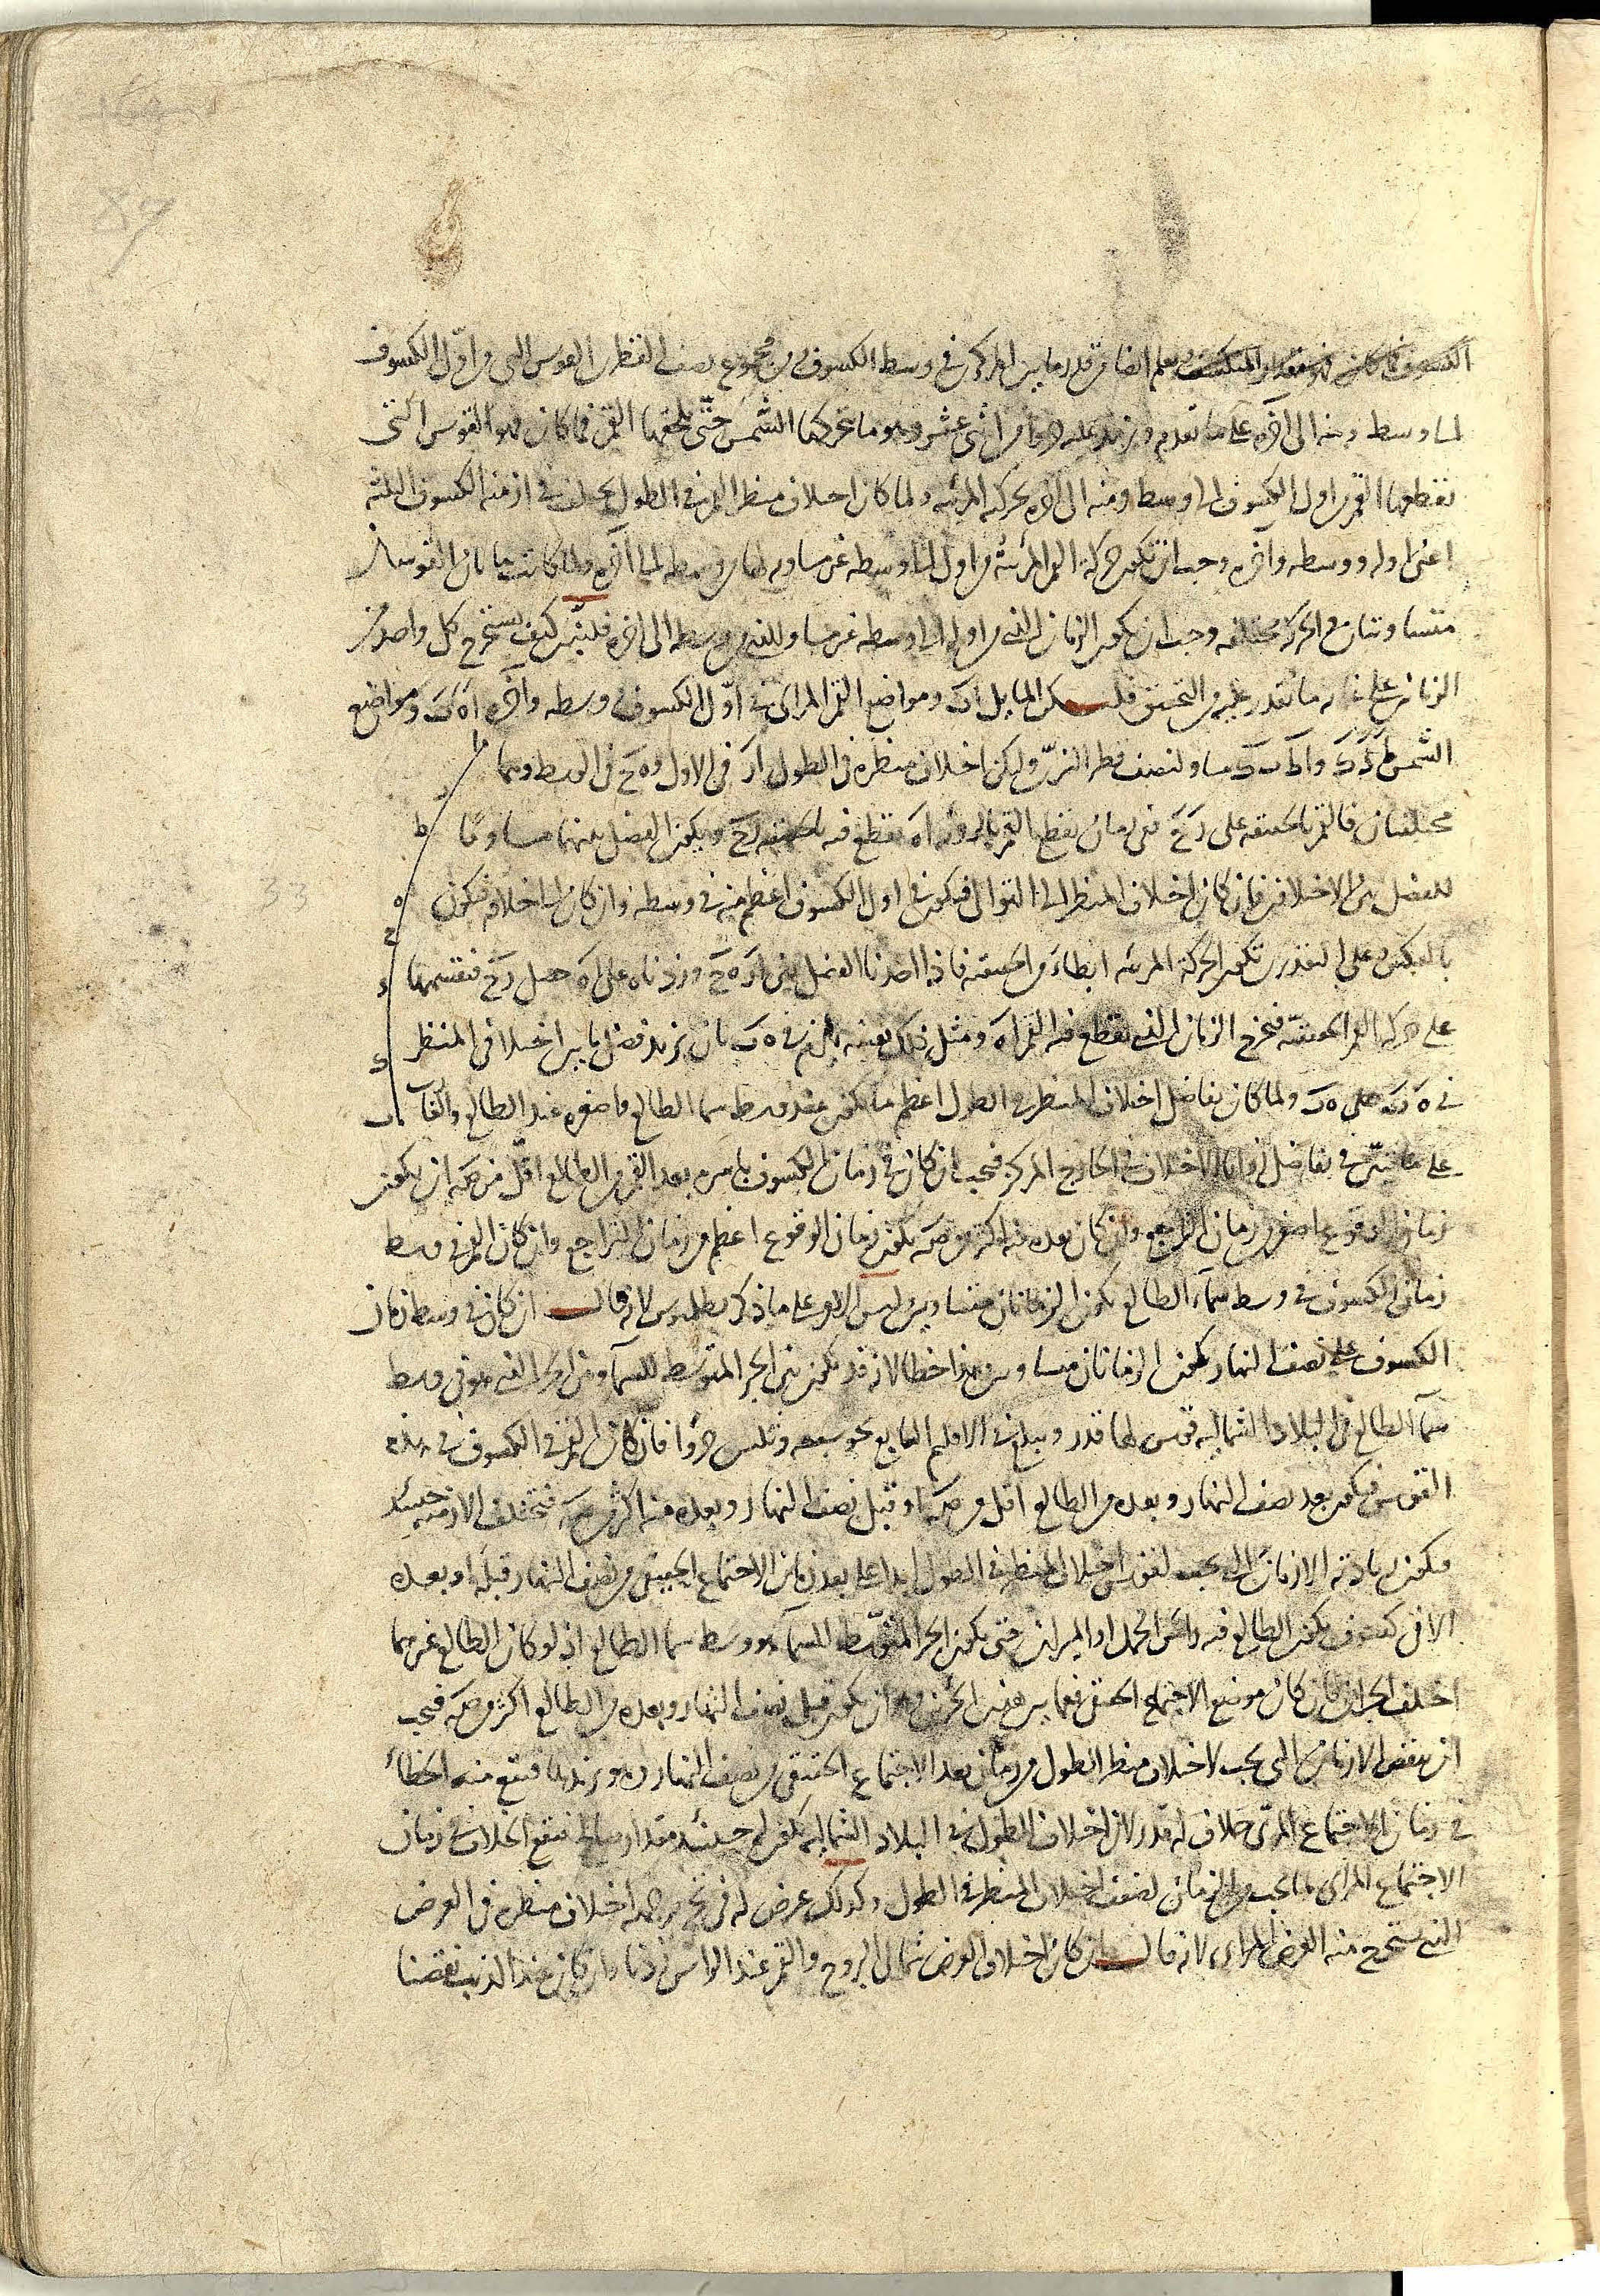 الكسوف فما كان فهو مقدار المنكسف ويعلم ايضا من قدر ما بين المركزين في وسط الكسوف من مجموع نصفي القطرين القوس التي من اول الكسوف
الى وسطه ومنه الى اخره على ما تقدم ونزيد عليه جزءا من اثنى عشر وهو ما تحركها الشمس حتى يلحقها القمر فما كان فهو القوس التي
يقطعها القمر من اول الكسوف الى وسطه ومنه الى اخره بحركته المرئية ولما كان اختلاف منظر القمر في الطول يختلف في ازمنة الكسوف الثلثة
اعنى اوله ووسطه واخره وجب ان تكون حركة القمر المرئية من اول الى وسطه غير مساوية لها من وسطه الى اخره ولما كانت هاتان القوسان
متساويتان والحركة مختلفه وجب ان يكون الزمان الذي من اوله الى وسطه غير مساو للذي من وسطه الى اخره فلنبين كيف يستخرج كل واحد من
الزمانين على غاية ما نقدر عليه من التحقيق فليكن المايل اب ومواضع القمر المرئى في اول الكسوف ووسطه واخره ا ه ب ومواضع
الشمس مساو لنصف قطر النيرين وليكن اختلاف منظره في الطول ا ز في الاول و ه ح في الوسط وهما
مختلفتان فالقمر بالحقيقه على ز ح ففي زمان يقطع القمر بالرؤيه ا ه يقطع فيه بالحقيقه ز ح ويكون الفضل بينهما مساويا
للفضل بين الاختلافين فان كان اختلاف المنظر الى التوالى فيكون في اول الكسوف اعظم منه في وسطه وان كان الى اخلافه فيكون
بالعكس وعلى التقديرين تكون الحركة المرئيه ابطاء من الحقيقه فاذا اخذنا الفضل بين ا ز ه ح وزدناه على ا ه حصل ز ح فنقسمها
على حركة القمر الحقيقيه فيخرج الزمان الذي يقطع فيه القمر ا ه ومثل ذلك بعينه يلزم في ه ب بان نزيد فضل ما بين اختلافى المنظر
في ه ب على ه ب ولما كان تفاضل اختلاف المنظر في الطول اعظم ما يكون عند وسط سما الطالع واصغره عند الطالع والغارب
على ما تبين في تفاضل زوايا الاختلاف في الخارج المركز فيجب ان كان في زمان الكسوف باسره بعد القمر من الطالع اقل من ص ان يكون
زمان الوقوع اصغر من زمان التراجع وان كان بعده منه اكثر من ص يكون زمان الوقوع اعظم من زمان التراجع وان كان القمر في وسط
زمان الكسوف في وسط سماء الطالع يكون الزمانان متساويين وليس الامر على ما ذكر بطلميوس لانه قال ان كان في وسط زمان
الكسوف على نصف النهار يكون الزمانان متساويين وهذا خطا لانه قد يكون بين الجزء المتوسط للسماء وبين الجزء الذي هو في وسط
سما الطالع في البلاد الشماليه قوس لها قدر ويبلغ في الاقليم السابع نحو سبعه وثلثين جزوا فان كان القمر في الكسوف في هذه
القوس فيكون بعد نصف النهار وبعده من الطالع اقل من ص او قبل نصف النهار وبعده منه اكثر من ص فتختلف الازمنه حينئذ
فيكون زيادة الازمان التى يجب لقوس اختلاف المنظر في الطول ابدا على بعد زمان الاجتماع الحقيقى من نصف النهار قبله او بعده
الا في كسوف يكون الطالع فيه راس الحمل او الميزان حتى يكون الجزء المتوسط للسماء هو وسط سما الطالع اذ لو كان الطالع غيرهما
اختلف الجزان فان كان موضع الاجتماع الحقيقى فيما بين هذين الجزئين وهو ان يكون قبل نصف النهار وبعده من الطالع اكثر من ص فيجب
ان ينقص الازمان التي يجب لاختلاف منظر الطول من زمان بعد الاجتماع الحقيقى من نصف النهار وهو يزيدها فيقع منه الخطاء
في زمان الاجتماع المرئى خلاف له قدر لان اختلاف الطول في البلاد الشماليه يكون له حينئذ مقدار صالح فيقع الخلاف في زمان
الاجتماع المرئى بما يجب من الزمان لضعف اختلاف المنظر في الطول وكذلك عرض له في تحريرحمله اختلاف منظره في العرض
الذي يستخرج منه العرض المرئى لانه قال ان كان اختلاف العرض شمالى البروج والقمر عند الراس زدنا وان كان عند الذنب نقصنا